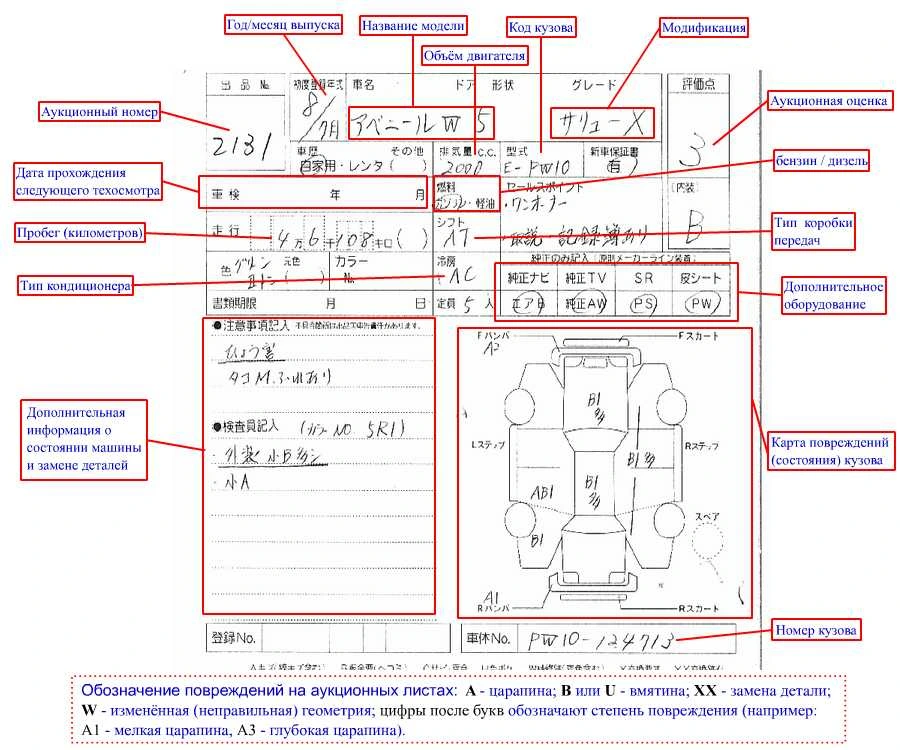 Год/месяц выпуска
Название модели
Код кузова
Объём двигателя
Модификация
Аукционный номер
Аукционная оценка
出品 №
初度登録年式
車名
ドア 形状
グレード
評価点
2131
8/7月
アベニールW 5
サリューX
3
車歴
その他
自家用・レンタ( )
排気量 C.C.
2000
型式
E-PW10
新車保証書
(有)
бензин / дизель
Дата прохождения
следующего техосмотра
車検 年 月
燃料
ガソリン・軽油
セールスポイント
・ワンオーナー
[内装]
B
Пробег (километров)
走行
4万6千108キロ( )
シフト
AT
・取説・記録簿あり
Тип коробки
передач
純正のみ記入
色
元色
カラー
No.
冷房
AC
純正ナビ 純正TV SR 皮シート
Тип кондиционера
Дополнительное
оборудование
書類期限 月 日
定員 5 人
エアB 純正AW PS PW
●注意事項記入
ひょう害
タコM.ふれあり
Fバンパ
A2
Fスカート
B1
多
Дополнительная
информация о
состоянии машины
и замене деталей
●検査員記入 (カラーNO 5R1)
・外装小B多シ
・小A
Lステップ
Rステップ
B1多
AB1
B1
多
Карта повреждений
(состояния) кузова
スペア
B1
A1
Rバンパ
Rスカート
登録No.
車体No.
PW10-124713
Номер кузова
Обозначение повреждений на аукционных листах: A - царапина; B или U - вмятина; XX - замена детали;
W - изменённая (неправильная) геометрия; цифры после букв обозначают степень повреждения (например:
A1 - мелкая царапина, A3 - глубокая царапина).